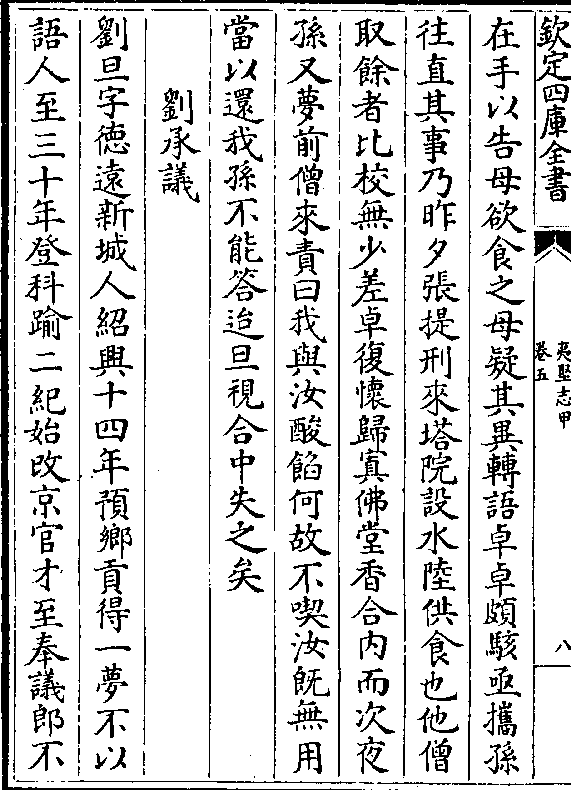 欽定四庫全書
夷堅志甲
卷五
八
在手以告母欲食之母疑其異轉語卓卓頗駭亟攜孫
往直其事乃昨夕張提刑來塔院設水陸供食也他僧
取餘者比校無少差卓復懷歸寘佛堂香合内而次夜
孫又夢前僧來責曰我與汝酸餡何故不喫汝既無用
當以還我孫不能答迨旦視合中失之矣
劉承議
劉旦字德遠新城人紹興十四年預鄉貢得一夢不以
語人至三十年登科踰二紀始改京官才至奉議郎不